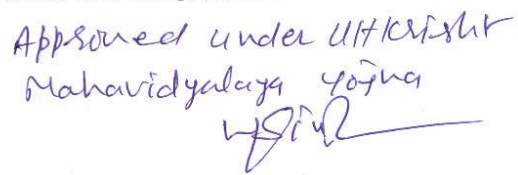 Approved under Utkrisht
Mahavidyalaya Yojna